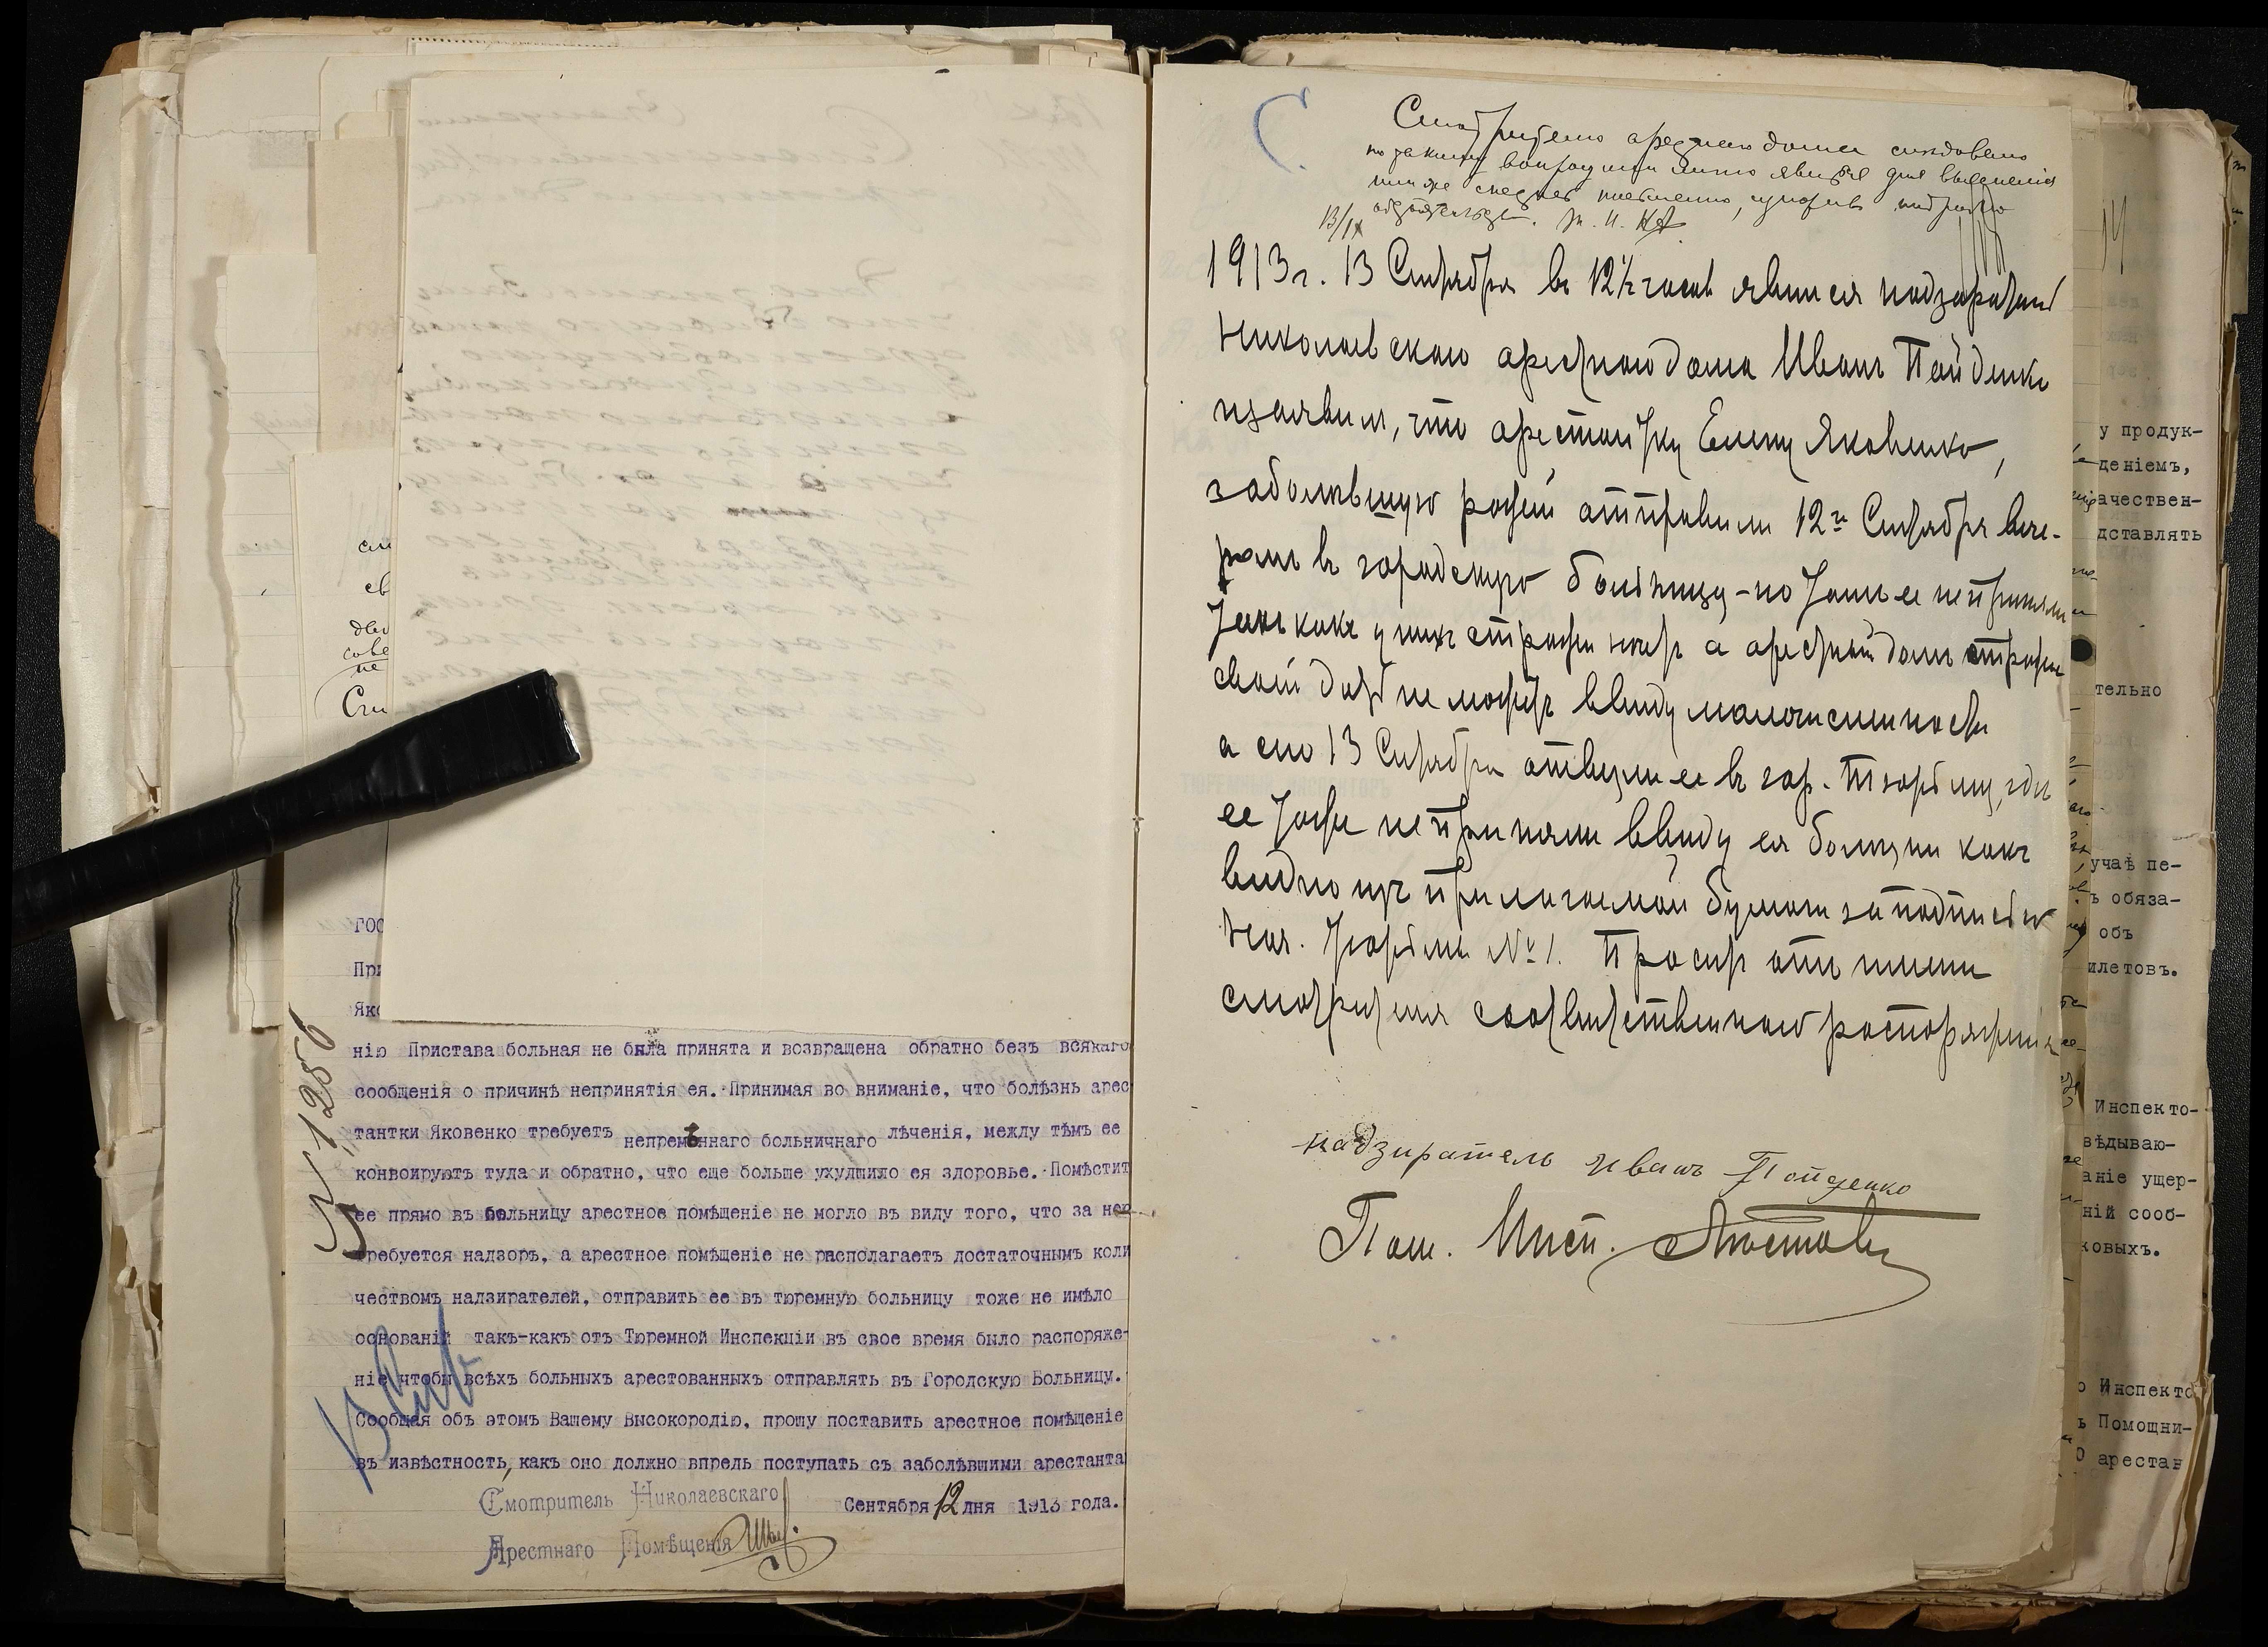 сли
св
дви
сове
не
гос
При
Яко
нію Пристава больная не была принята и возвращена обратно безъ всякаго
сообщенія о причинѣ непринятія ея. Принимая во вниманіе, что болѣзнь арес
тантки Яковенко требуетъ непремѣннаго больничнаго лѣченія, между тѣмъ ее
конвоируютъ туда и обратно, что еще больше ухудшило ея здоровье. Помѣстит
ее прямо въ больницу арестное помѣщеніе не могло въ виду того, что за нею
требуется надзоръ, а арестное помѣщеніе не располагаетъ достаточнымъ коли
чествомъ надзирателей, отправить ее въ тюремную больницу тоже не имѣло
основаній такъ-какъ отъ Тюремной Инспекціи въ свое время было распоряже-
ніе чтобы всѣхъ больныхъ арестованныхъ отправлять въ Городскую Больницу.
Сообщая объ этомъ Вашему Высокородію, прошу поставить арестное помѣщеніе
въ извѣстность, какъ оно должно впредь поступать съ заболѣвшими арестанта
Смотритель Николаевскаго
Сентября 12 дня 1913 года.
Арестнаго Помѣщенія
№ 12856
Смотрителю арестнаго дома слѣдовало
по такому вопросу или лично явиться для выясненія
или же снестись письменно, изложивъ подробно
обстоятельства.
13/IX
1913 г. 13 Сентября въ 12½ часовъ явился надзиратель
Николаевскаго арестнаго дома Иванъ Пойденко
и заявилъ, что арестантку Елену Яковенко,
заболѣвшую рожей отправили 12го Сентября вече-
ромъ въ городскую больницу - но тамъ ее не приняли
такъ какъ у нихъ стражи нетъ а арестный домъ стражи
своей дать не можетъ ввиду малочисленности
а сего 13 Сентября отвезли ее въ гор. тюрьму, гдѣ
ее тоже не приняли ввиду ея болезни какъ
видно изъ прилагаемой бумаги за подписью
Нач. тюрьмы № 1. Проситъ отъ имени
смотрителя соответственнаго распоряженія
надзиратель Иванъ Пойденко
Пом. Инсп.
у продук-
деніемъ,
ачествен-
дставлять
тельно
учаѣ пе-
ъ обяза-
объ
илетовъ.
Инспекто-
вѣдываю-
аніе ущер-
ній сооб-
ковыхъ.
о Инспекто
ъ Помощни-
О арестан